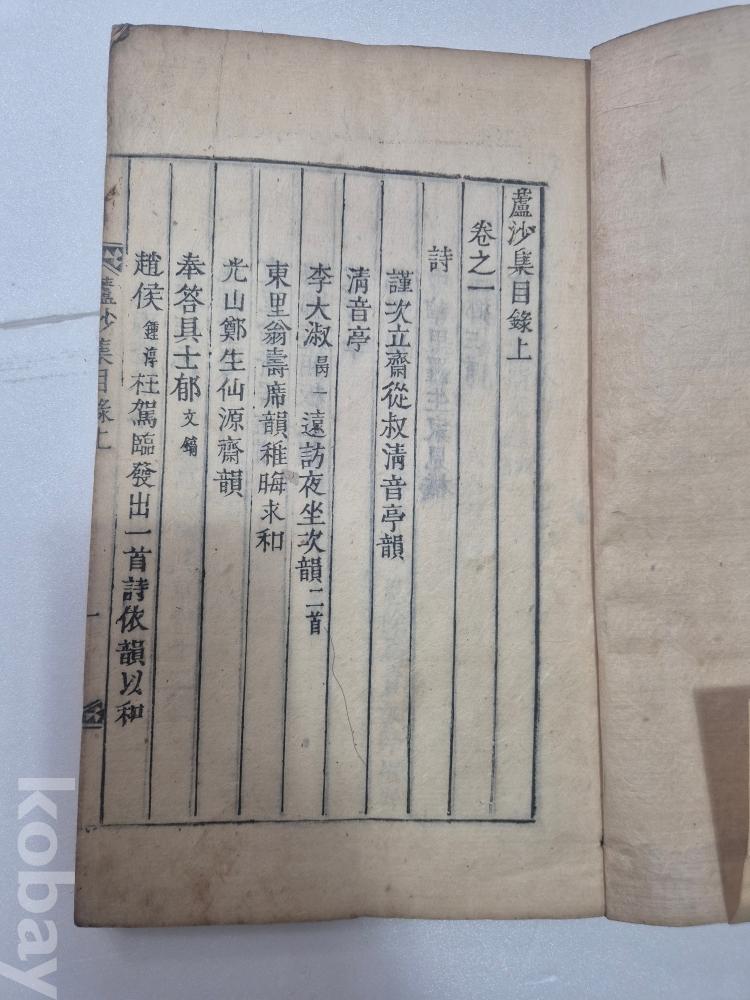 蘆沙集目錄上
卷之一
詩
謹次立齋從叔淸音亭韻
淸音亭
李大淑 一遠訪夜坐次韻二首
東里翁壽席韻稚晦求和
光山鄭生仙源齋韻
奉答具士郁文
趙侯鍾淳枉駕臨發出一首詩依韻以和
蘆沙集目錄上
一
kobay